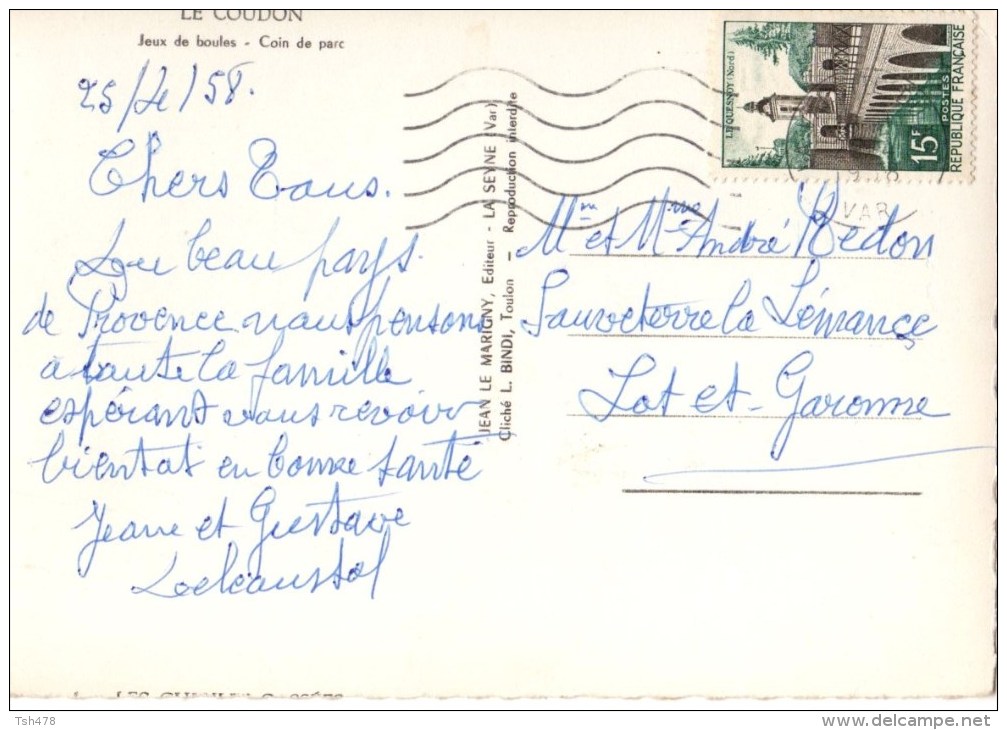 LE COUDON
Jeux de boules - Coin de parc
25/4/58.
Chers Tous.
Du beau pays
de Provence nous pensons
a toute la famille
espérant vous revoir
bientot en bonne santé
Jeanne et Gustave
JEAN LE MARIGNY, Editeur - LA SEYNE (Var)
Cliché L. BINDI, Toulon - Reproduction interdite
LE QUESNOY (Nord)
15F
POSTES
REPUBLIQUE FRANÇAISE
VAR
Mr et Mme André Redon
Sauveterre la Lémance
Lot et-Garonne
Tsh478
delcampe.net